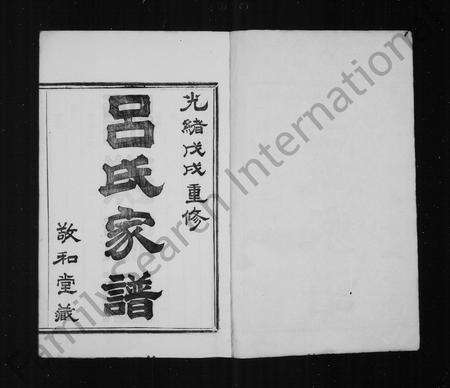 光緒戊戌重修
呂氏家譜
敬和堂藏
FamilySearch International